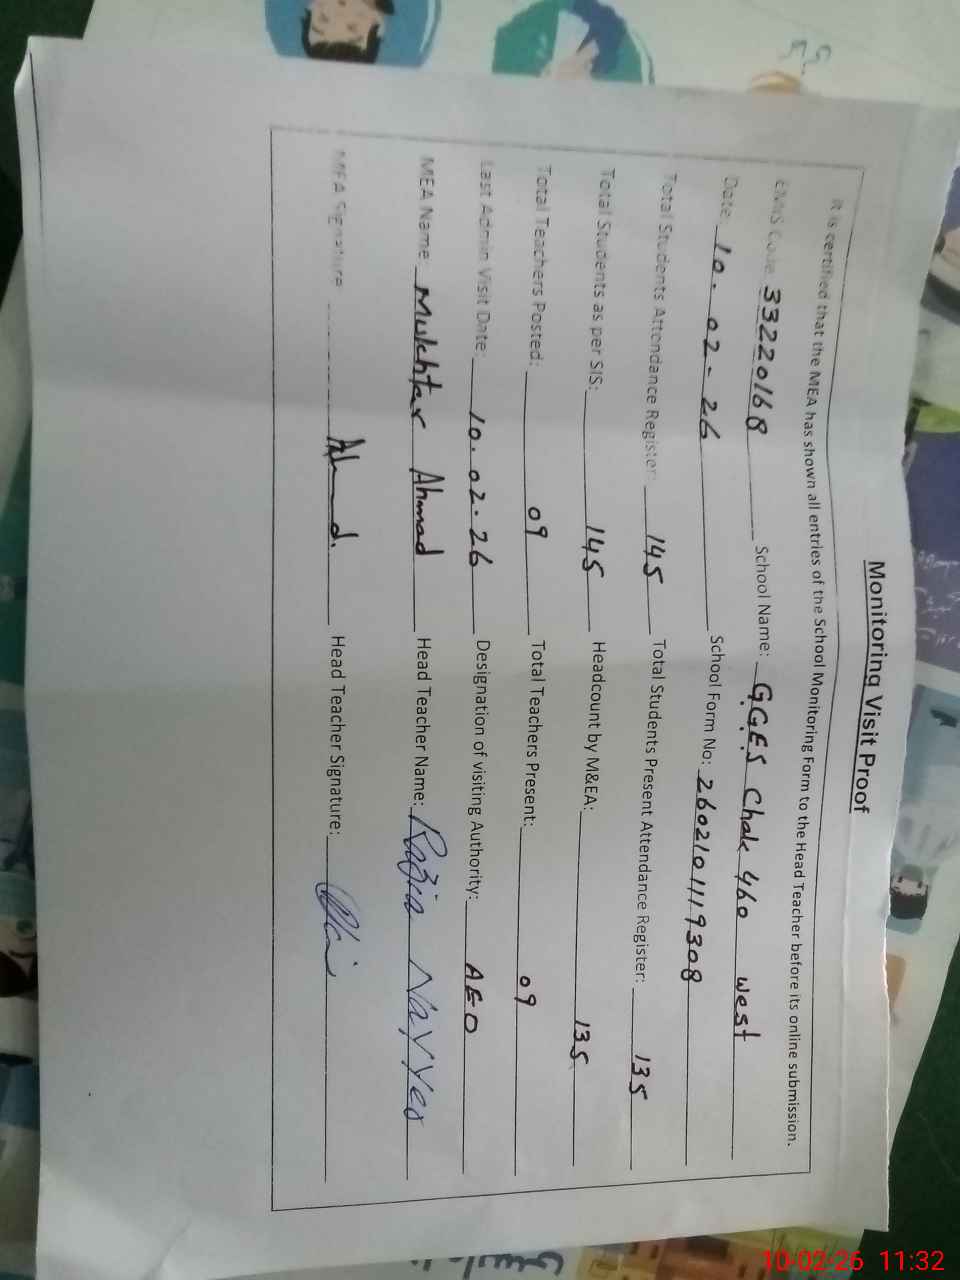 Monitoring Visit Proof
It is certified that the MEA has shown all entries of the School Monitoring Form to the Head Teacher before its online submission.
EMIS Code 33220168 School Name: G.G.E.S Chak 460 west
Date 10.02-26 School Form No: 2602101119308
Total Students Attendance Register: 145 Total Students Present Attendance Register: 135
Total Students as per SIS: 145 Headcount by M&EA: 135
Total Teachers Posted: 09 Total Teachers Present: 09
Last Admin Visit Date: 10.02.26 Designation of visiting Authority: AEO
MEA Name Mukhtar Ahmad Head Teacher Name: Razia Nayyer
MEA Signature Head Teacher Signature:
10-02-26 11:32